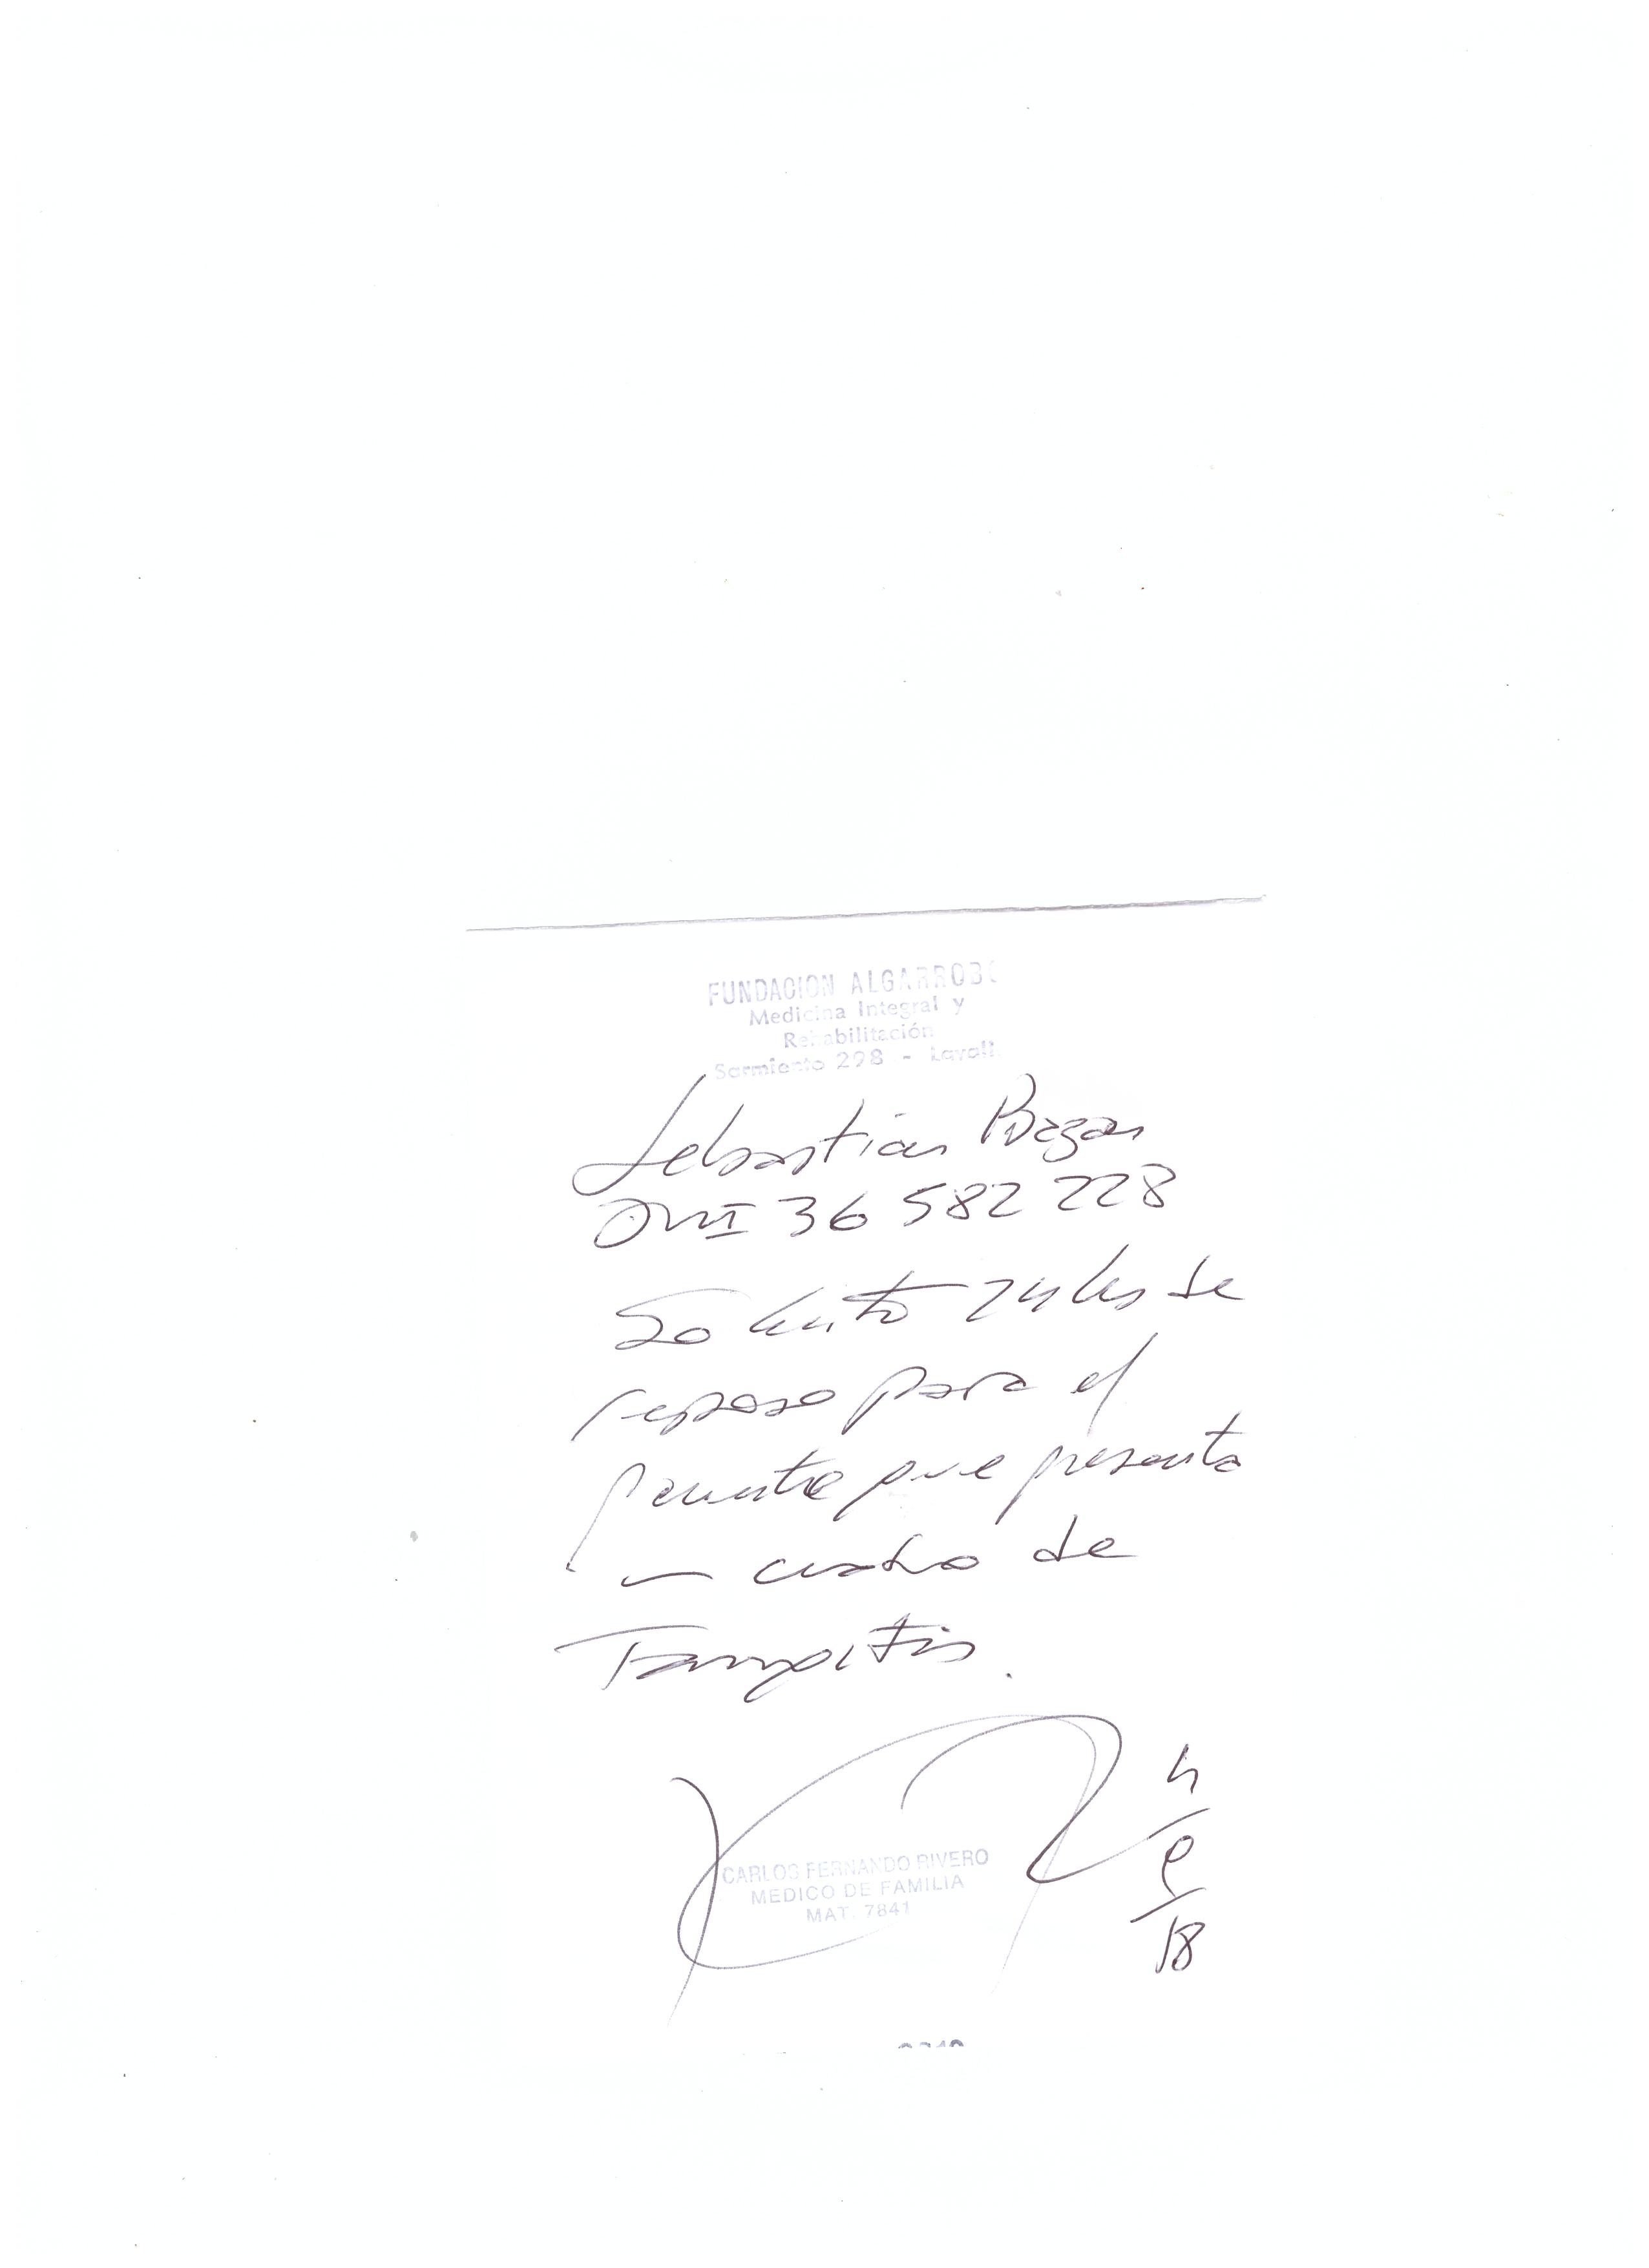 FUNDACION ALGARROBO
Medicina Integral y
Rehabilitación
Sarmiento 298 - Lavall
Sebastian Bazan
DNI 36 582 228
Solicito 24 hs de
reposo para el
paciente que presenta
un cuadro de
Faringitis.
CARLOS FERNANDO RIVERO
MEDICO DE FAMILIA
MAT. 7841
4
18